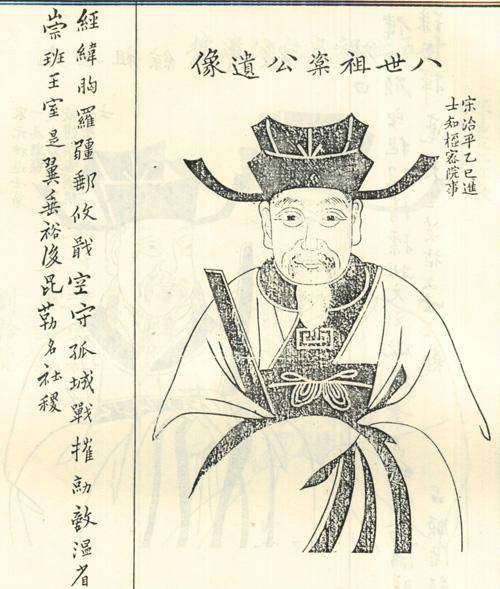 八世祖公遺像
宋治平乙巳進
士知樞密院事
經緯胸羅疆郵攸戢空守孤城戰摧勍敵溫省
崇班王室是翼垂裕後昆勒名社稷